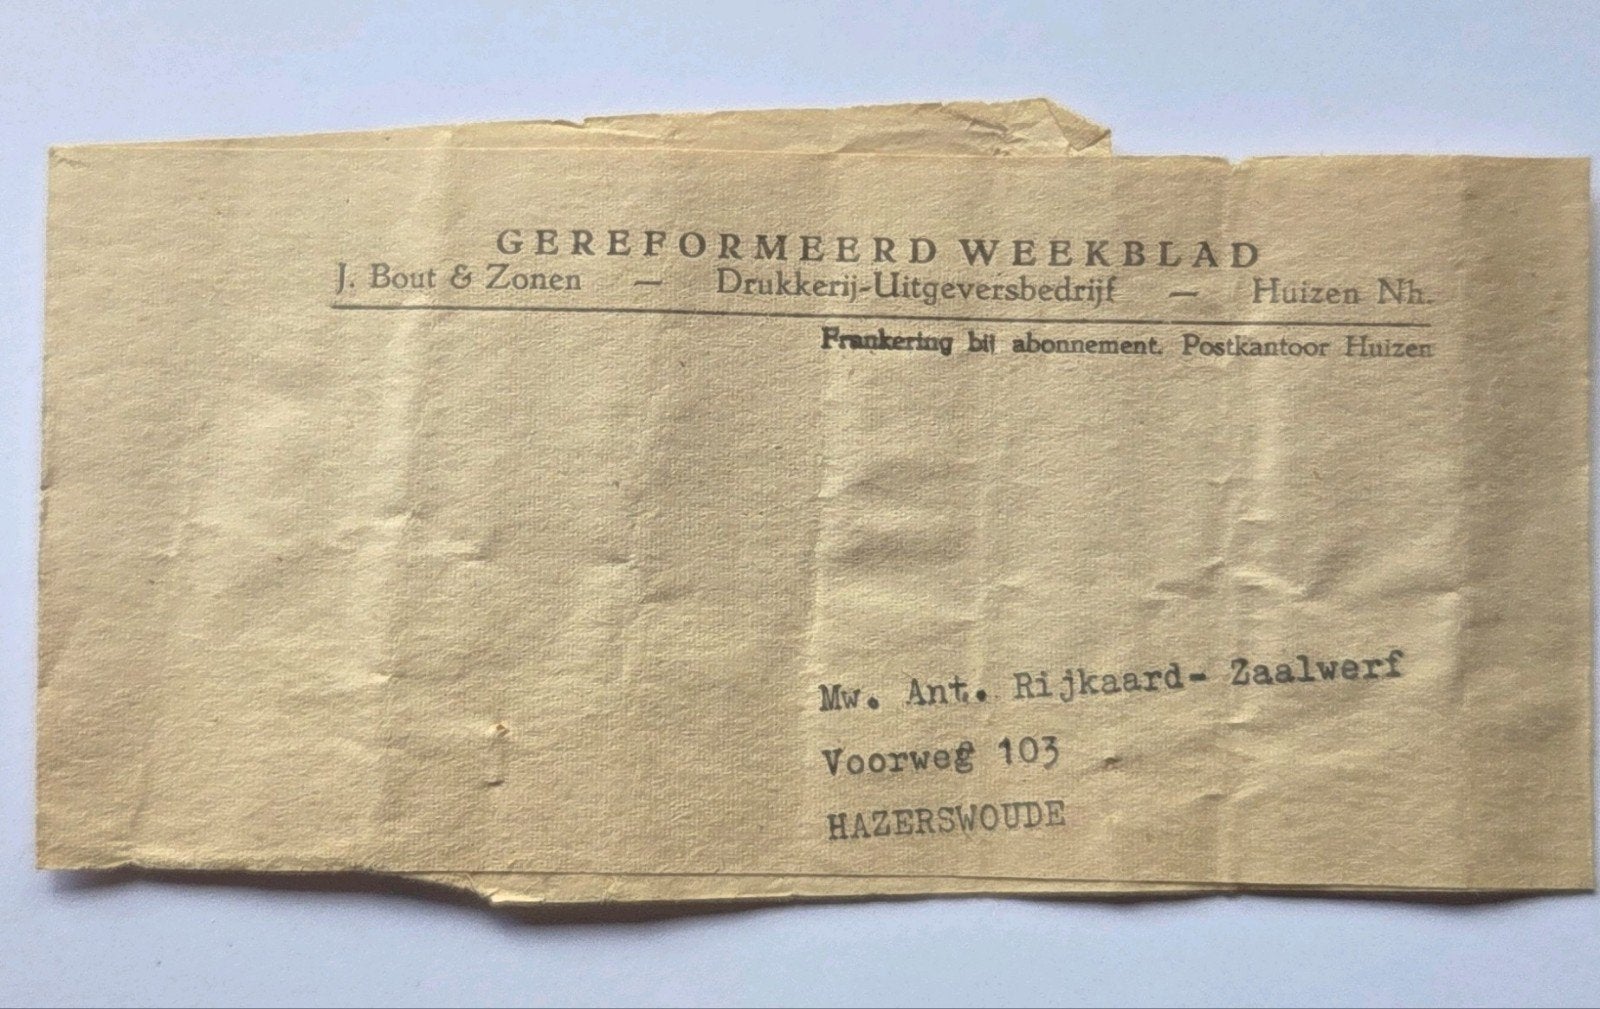 GEREFORMEERD WEEKBLAD
J. Bout & Zonen — Drukkerij-Uitgeversbedrijf — Huizen Nh.
Frankering bij abonnement. Postkantoor Huizen
Mw. Ant. Rijkaard- Zaalwerf
Voorweg 103
HAZERSWOUDE